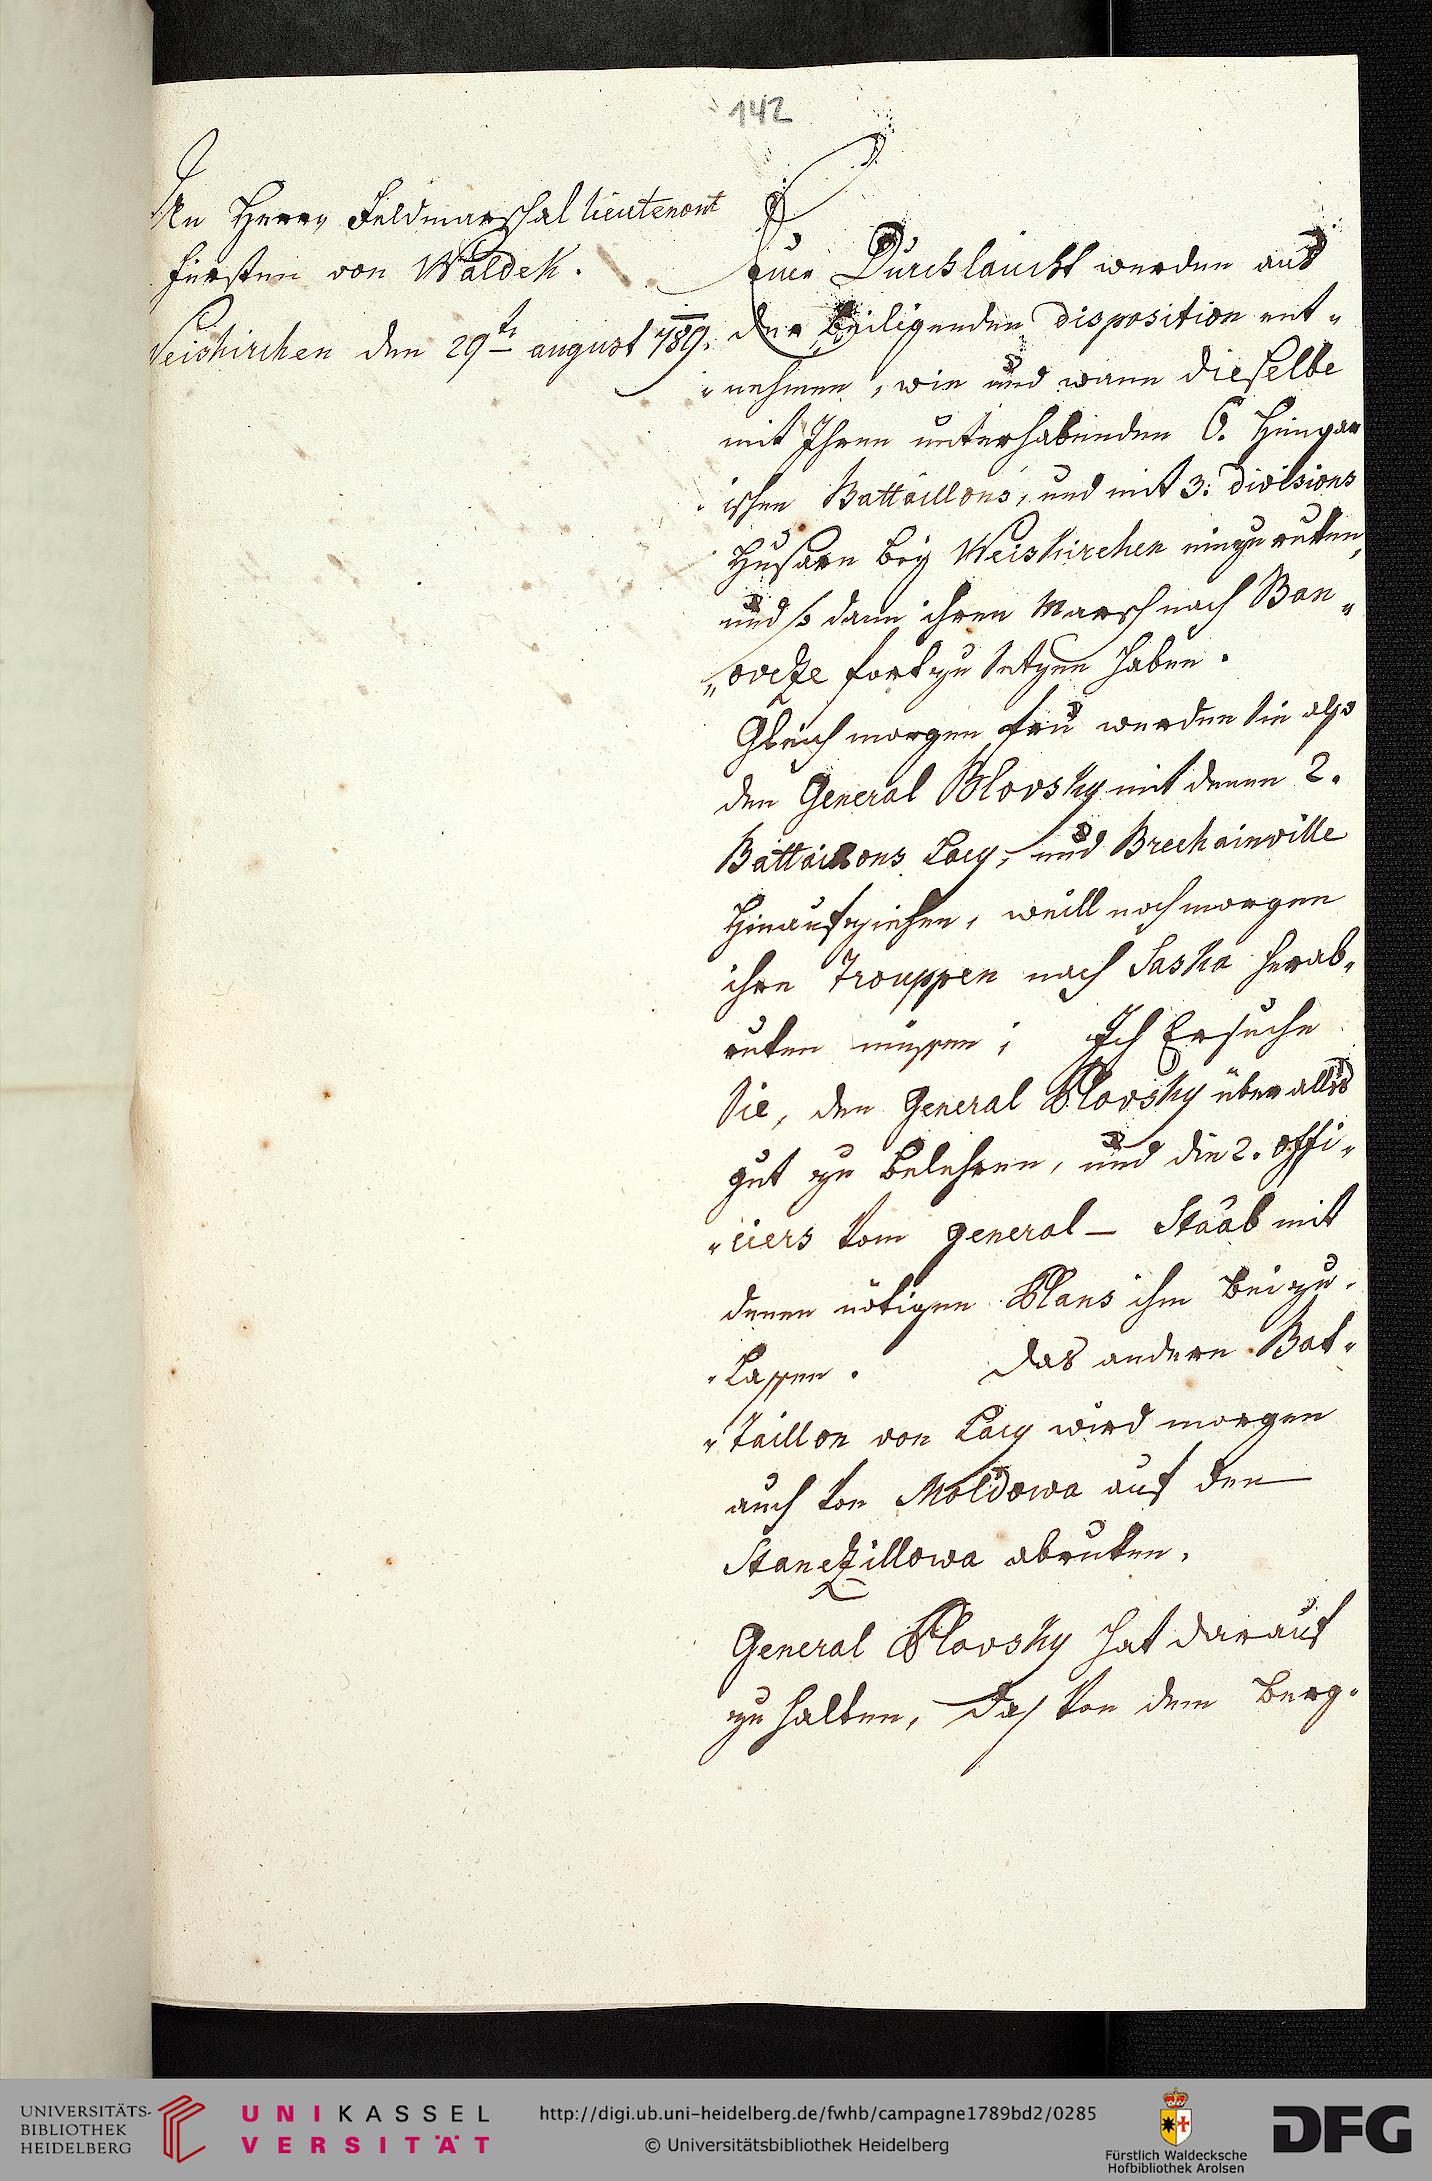 142
An Herrn Feldmarschal lieutenant
fürsten von Waldek.
Weiskirchen den 29tn august 789.
Euer Durchlaucht werden aus
der beiligenden disposition ent„
„nehmen, wie und wann dieselbe
mit Ihren unterhabenden 6. Hungar
„ischen Battaillons, und mit 3: divisions
Husarn beÿ Weiskirchen einzuruken,
und so dann ihren Marsch nach Ban„
„oveze fortzusetzen haben.
Gleich morgen fru werden sie also
den General Blovsky mit denen 2.
Battaillons Lacy, und Brechainville
Hinaufziehen, weill noch morgen
ihre Trouppen nach Saska herab„
ruken müssen; Ich Ersuche
Sie, den General Blovsky über alles
gut zu belehren, und die 2. offi„
„ciers vom general- Staab mit
denen nötigen Plans ihm beizu„
„lassen. das andere Bat„
„taillon von Lacy wird morgen
auch von Moldowa auf den
Stanczillowa abruken.
General Blovsky hat darauf
zu halten, das von dem berg„
UNIVERSITÄTS-
BIBLIOTHEK
HEIDELBERG
UNIKASSEL
VERSITÄT
http://digi.ub.uni-heidelberg.de/fwhb/campagne1789bd2/0285
© Universitätsbibliothek Heidelberg
Fürstlich Waldecksche
Hofbibliothek Arolsen
DFG